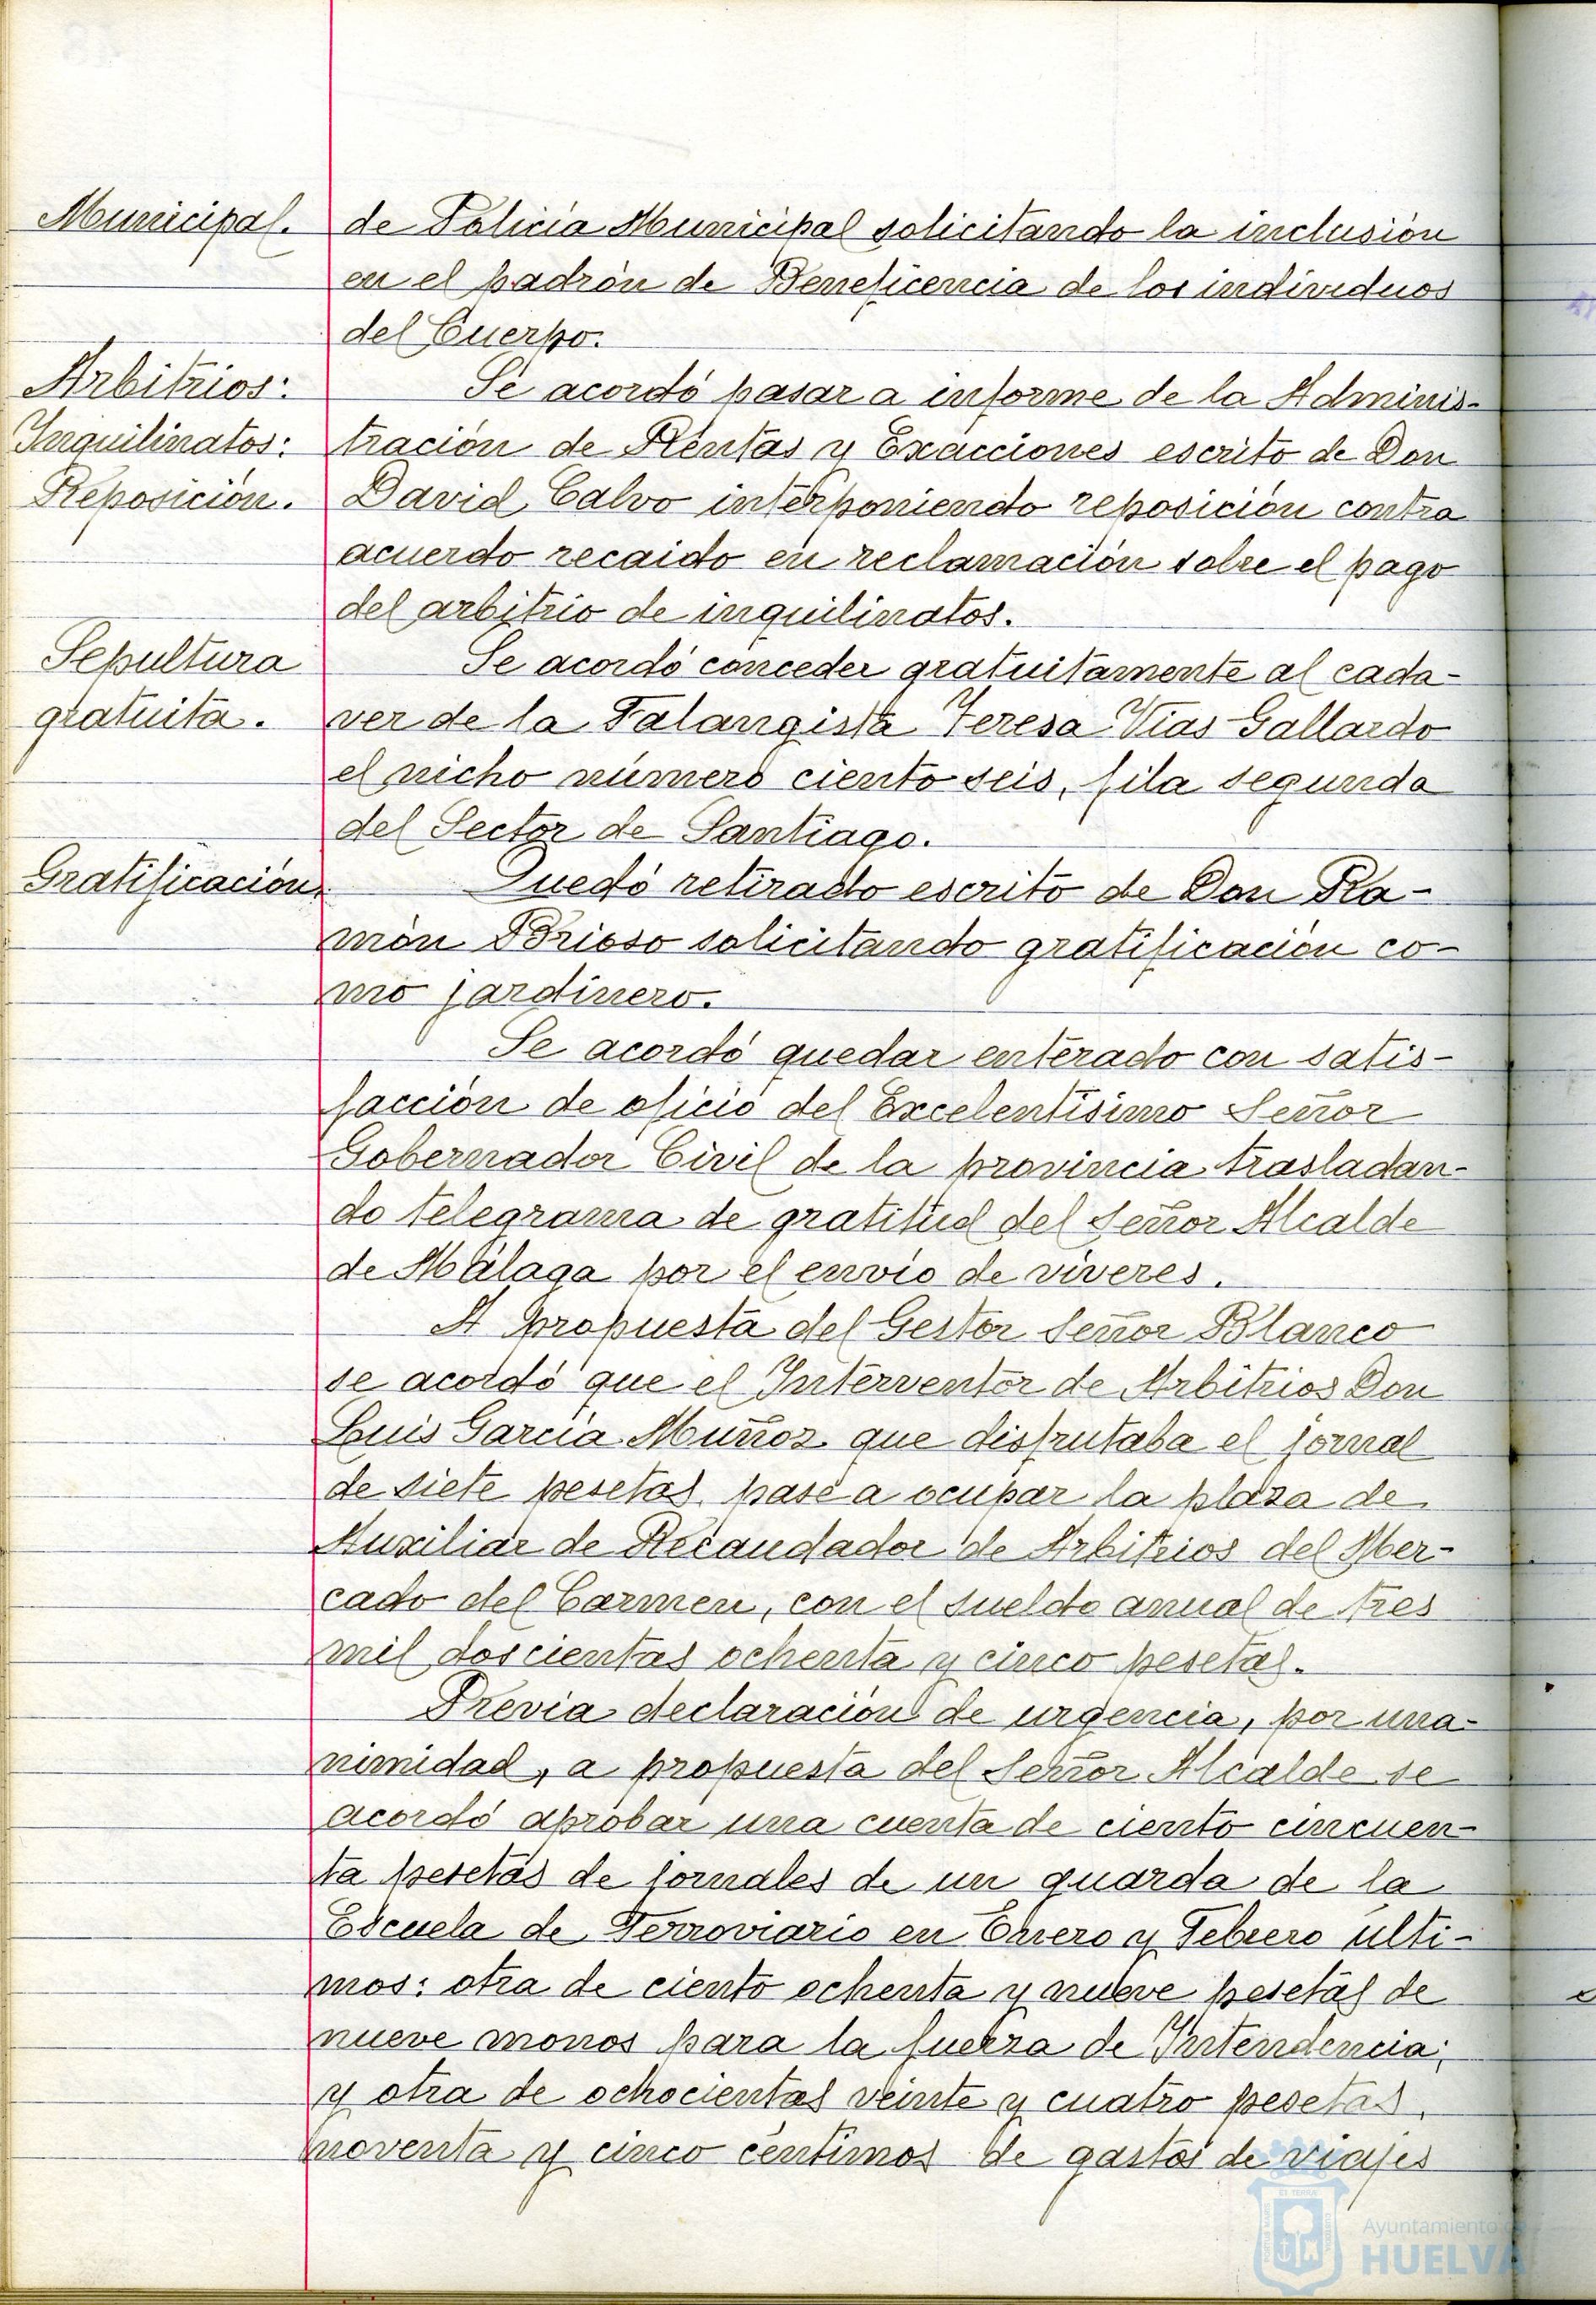 Municipal.
de Policia Municipal solicitando la inclusión
en el padrón de Beneficencia de los individuos
del Cuerpo.
Arbitrios:
Inquilinatos:
Reposición.
Se acordó pasar a informe de la Adminis-
tración de Rentas y Exacciones escrito de Don
David Calvo interponiendo reposición contra
acuerdo recaido en reclamación sobre el pago
del arbitrio de inquilinatos.
Sepultura
gratuita.
Se acordó conceder gratuitamente al cada-
ver de la Falangista Teresa Vias Gallardo
el nicho número ciento seis, fila segunda
del Sector de Santiago.
Gratificación.
Quedó retirado escrito de Don Ra-
món Brioso solicitando gratificación co-
mo jardinero.
Se acordó quedar enterado con satis-
facción de oficio del Excelentisimo Señor
Gobernador Civil de la provincia trasladan-
do telegrama de gratitud del Señor Alcalde
de Málaga por el envio de viveres.
A propuesta del Gestor Señor Blanco
se acordó que el Interventor de Arbitrios Don
Luis García Muñoz que disfrutaba el jornal
de siete pesetas, pase a ocupar la plaza de
Auxiliar de Recaudador de Arbitrios del Mer-
cado del Carmen, con el sueldo anual de tres
mil doscientas ochenta y cinco pesetas.
Previa declaración de urgencia, por una-
nimidad, a propuesta del Señor Alcalde se
acordó aprobar una cuenta de ciento cincuen-
ta pesetas de jornales de un guarda de la
Escuela de Ferroviario en Enero y Febrero ulti-
mos: otra de ciento ochenta y nueve pesetas de
nueve monos para la fuerza de Intendencia;
y otra de ochocientas veinte y cuatro pesetas,
noventa y cinco centimos de gastos de viajes
Ayuntamiento de
HUELVA